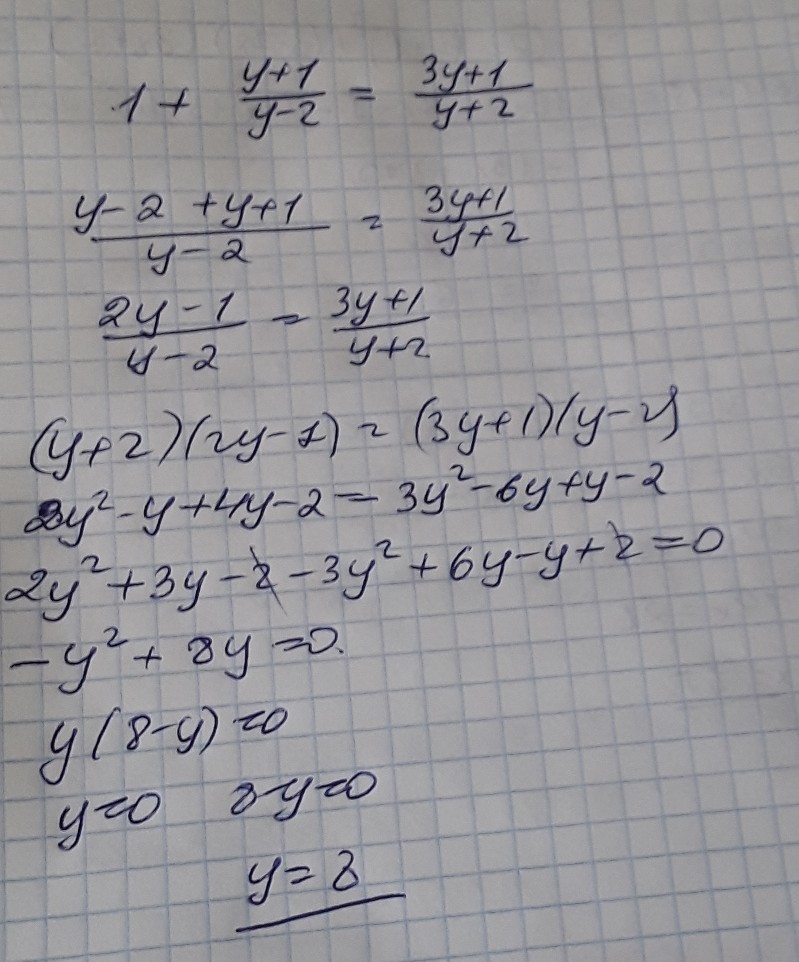 1 + (y+1)/(y-2) = (3y+1)/(y+2)
(y-2+y+1)/(y-2) = (3y+1)/(y+2)
(2y-1)/(y-2) = (3y+1)/(y+2)
(y+2)(2y-1) = (3y+1)(y-2)
2y²-y+4y-2 = 3y²-6y+y-2
2y²+3y-2-3y²+6y-y+2=0
-y²+8y=0.
y(8-y)=0
y=0 8-y=0
y=8